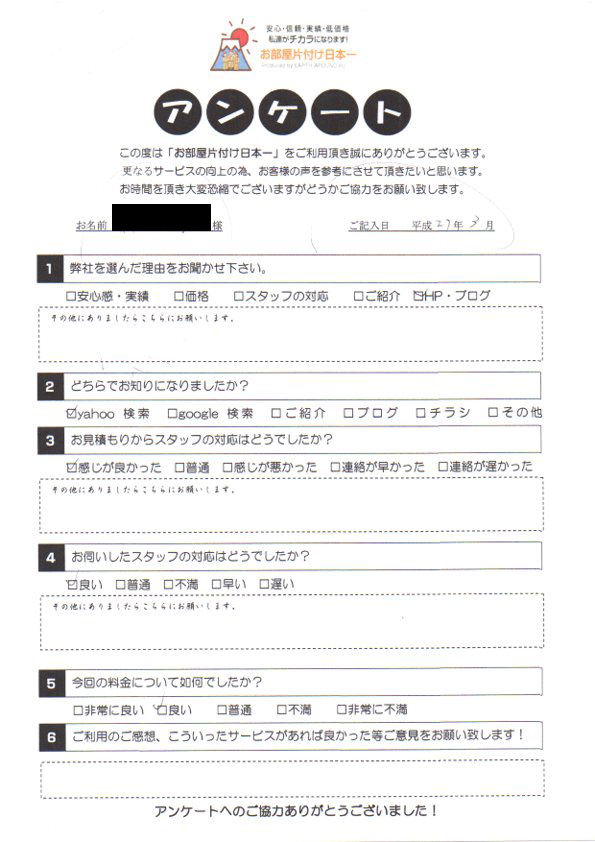 安心・信頼・実績・低価格
私達がチカラになります!
お部屋片付け日本一
Produced by EARTH AROUND Inc.
アンケート
この度は「お部屋片付け日本一」をご利用頂き誠にありがとうございます。
更なるサービスの向上の為、お客様の声を参考にさせて頂きたいと思います。
お時間を頂き大変恐縮でございますがどうかご協力をお願い致します。
お名前 様 ご記入日 平成 27 年 3 月
1 弊社を選んだ理由をお聞かせ下さい。
□安心感・実績 □価格 □スタッフの対応 □ご紹介 ☑HP・ブログ
その他にありましたらこちらにお願いします。
2 どちらでお知りになりましたか?
☑yahoo 検索 □google 検索 □ご紹介 □ブログ □チラシ □その他
3 お見積もりからスタッフの対応はどうでしたか?
☑感じが良かった □普通 □感じが悪かった □連絡が早かった □連絡が遅かった
その他にありましたらこちらにお願いします。
4 お伺いしたスタッフの対応はどうでしたか?
☑良い □普通 □不満 □早い □遅い
その他にありましたらこちらにお願いします。
5 今回の料金について如何でしたか?
□非常に良い ☑良い □普通 □不満 □非常に不満
6 ご利用のご感想、こういったサービスがあれば良かった等ご意見をお願い致します!
アンケートへのご協力ありがとうございました!